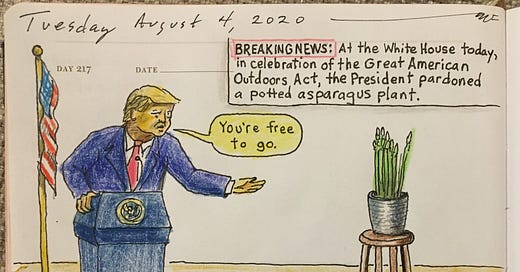 Tuesday August 4, 2020
BREAKING NEWS: At the White House today,
in celebration of the Great American
Outdoors Act, the President pardoned
a potted asparagus plant.
DAY 217 DATE
You're free
to go.